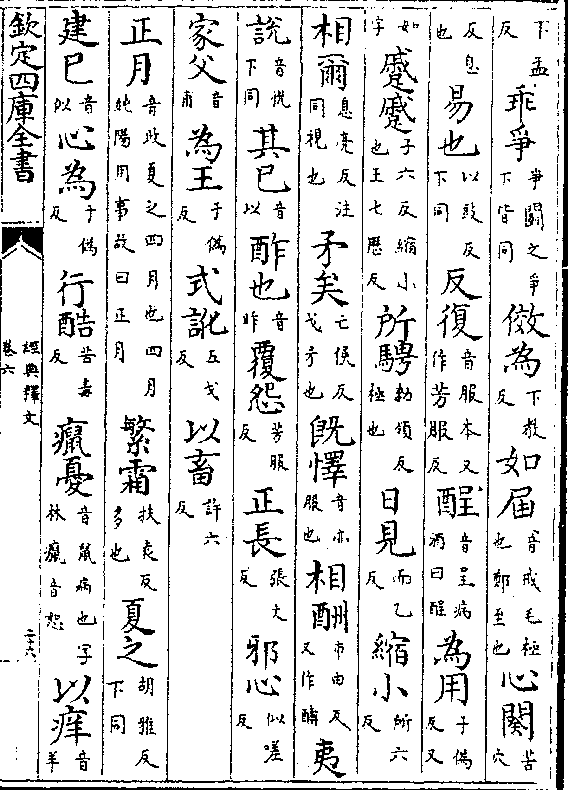 下孟反乖爭爭鬬之爭下皆同傚為下教反如届音戒毛極也鄭至也心闋苦穴
反息也易也以䜴反下同反復音服本又作芳服反酲音呈病酒曰酲為用于偽反又
如字蹙蹙子六反縮小也王七歷反所騁勑領反極也日見而乙反縮小所六反
相爾息亮反注同視也矛矣亡侯反戈矛也既懌音亦服也相酬市由反又作醻夷
説音恱下同其已音以酢也音昨覆怨芳服反正長張丈反邪心似嗟反
家父音甫為王于偽反式訛五戈反以畜許六反
正月音政夏之四月也四月純陽用事故曰正月繁霜扶袁反多也夏之胡雅反下同
建巳音似心為于偽反行酷苦毒反癙憂音鼠病也字林癙音恕以痒音羊
欽定四庫全書
經典釋文
卷六
二十六